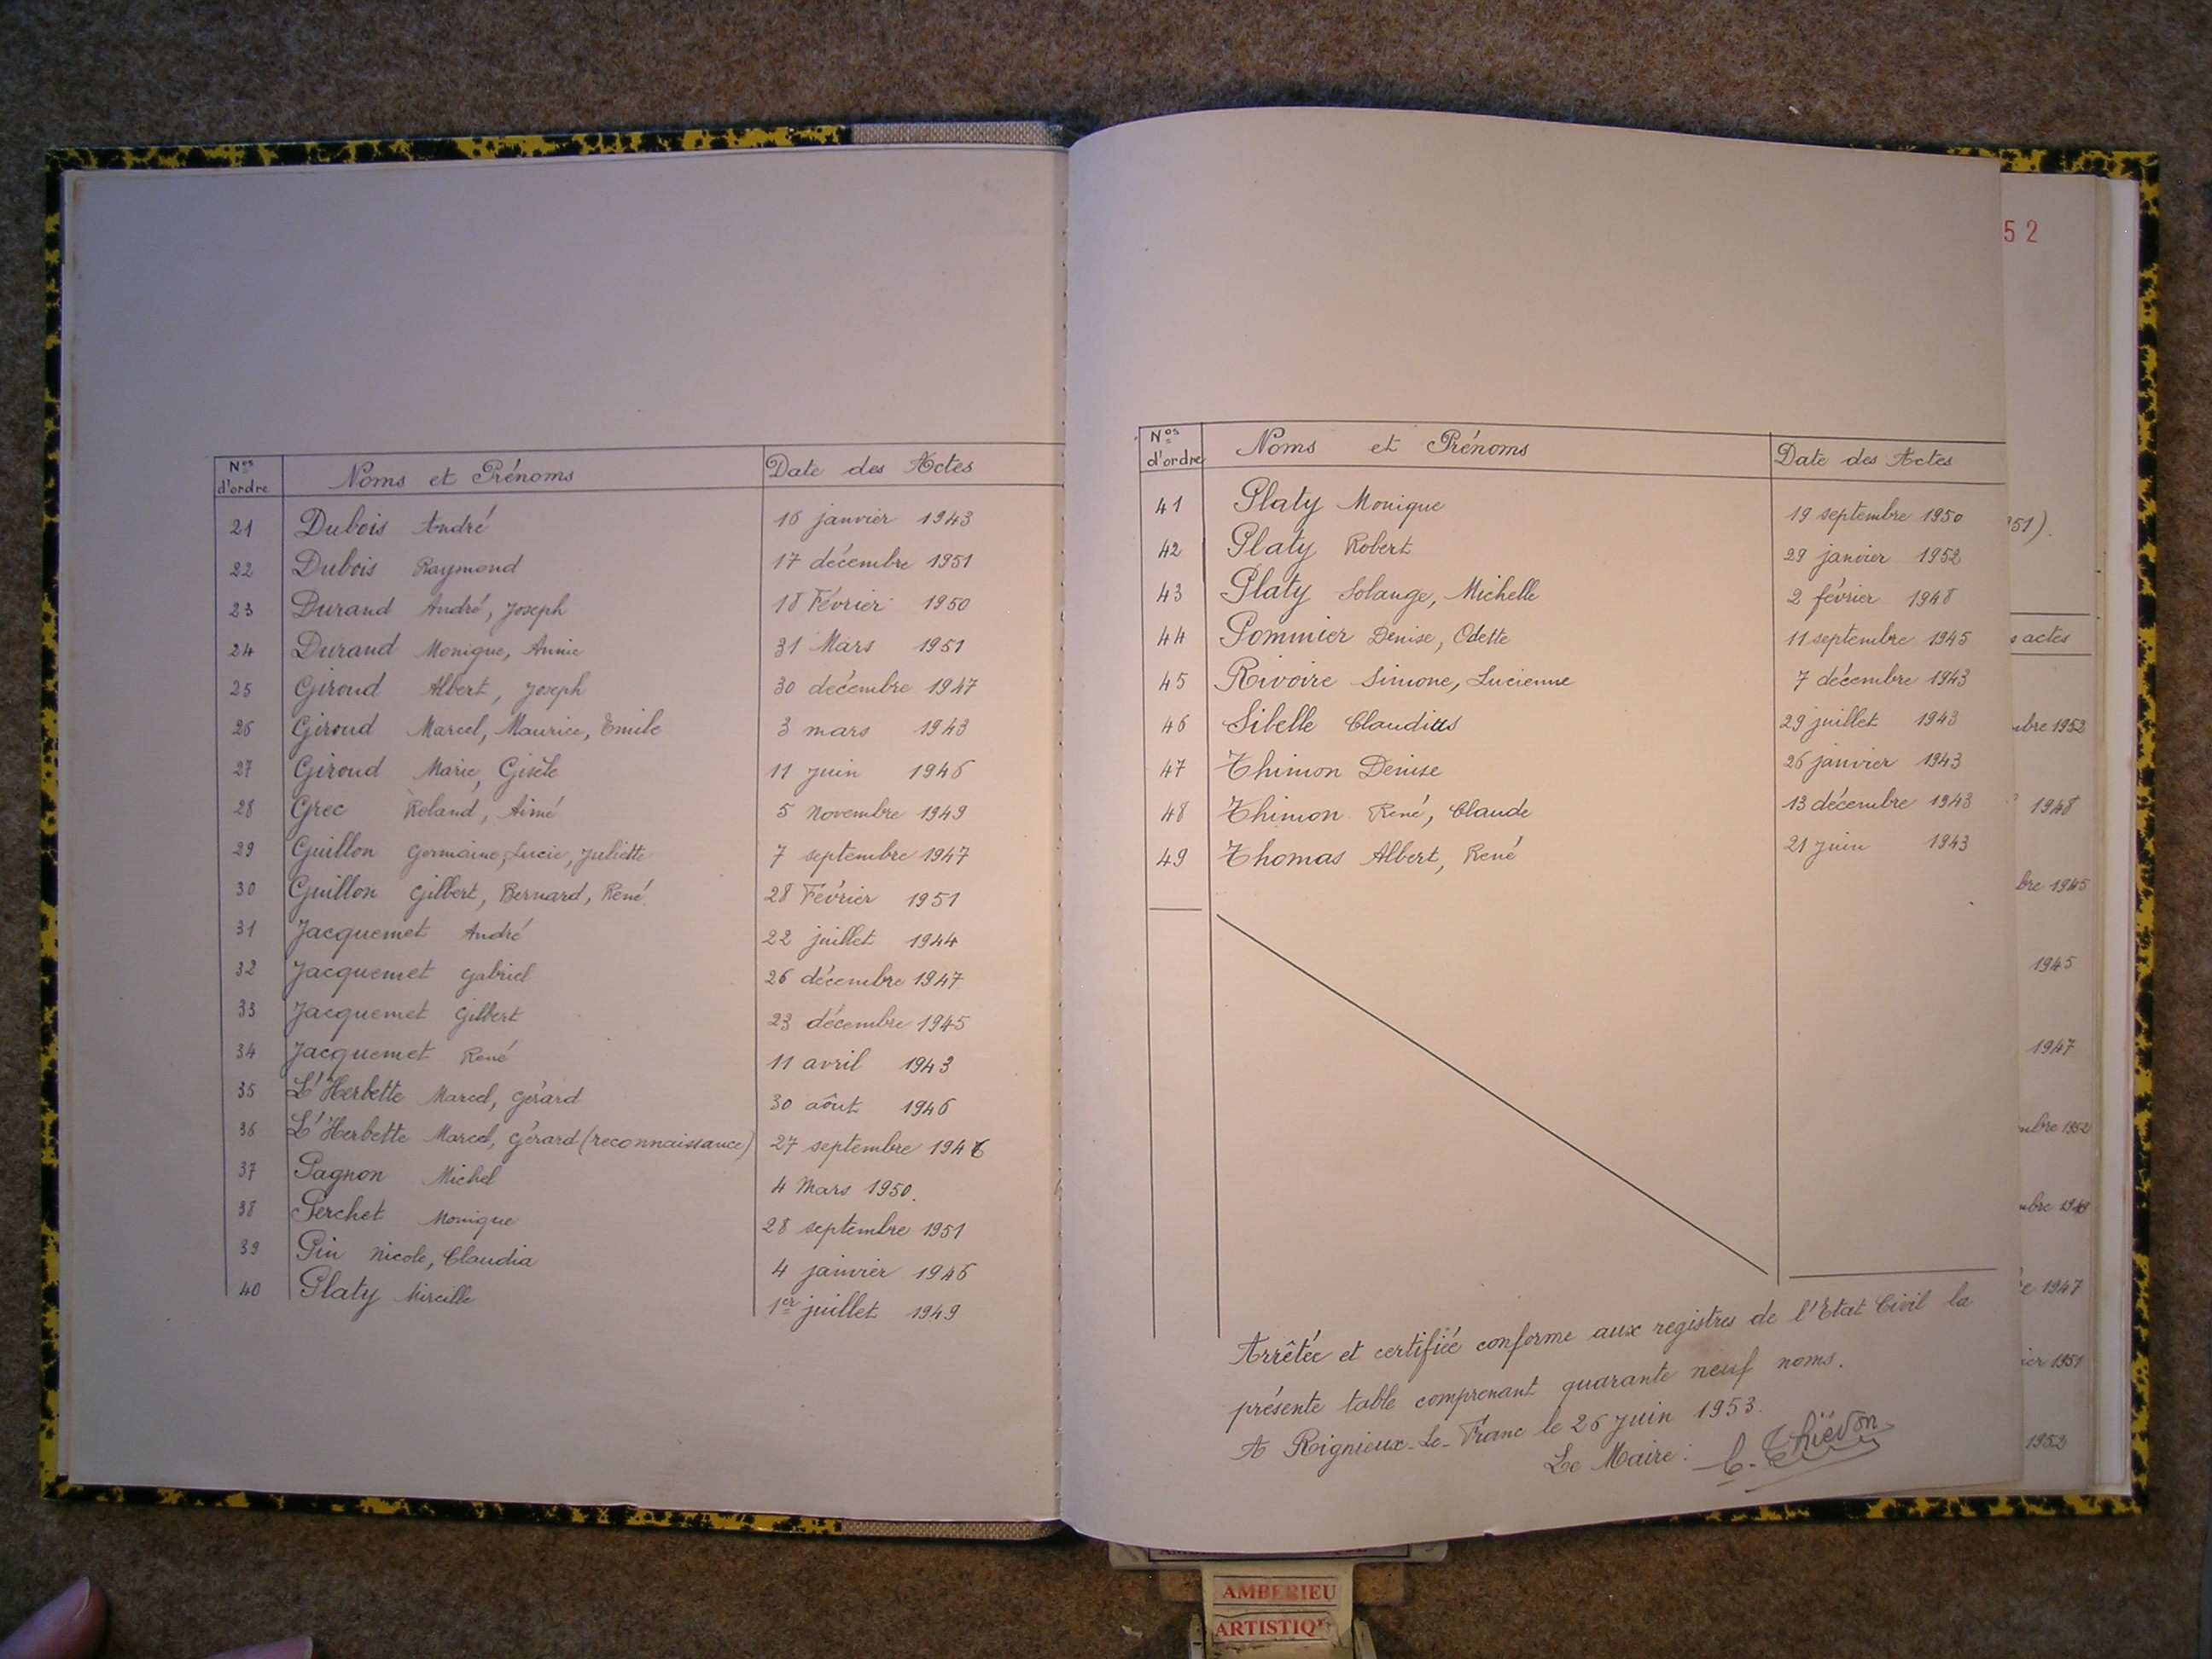 Nos d'ordre Noms et Prénoms Date des Actes
21 Dubois André 16 janvier 1943
22 Dubois Raymond 17 décembre 1951
23 Durand André, Joseph 18 Février 1950
24 Durand Monique, Annie 31 Mars 1951
25 Giroud Albert, Joseph 30 décembre 1947
26 Giroud Marcel, Maurice, Emile 3 mars 1943
27 Giroud Marie, Gisèle 11 juin 1946
28 Grec Roland, Aimé 5 Novembre 1949
29 Guillon Germaine, Lucie, Juliette 7 septembre 1947
30 Guillon Gilbert, Bernard, René 28 Février 1951
31 Jacquemet André 22 juillet 1944
32 Jacquemet Gabriel 26 décembre 1947
33 Jacquemet Gilbert 23 décembre 1945
34 Jacquemet René 11 avril 1943
35 L'Herbette Marcel, Gérard 30 aôut 1946
36 L'Herbette Marcel, Gérard (reconnaissance) 27 septembre 1946
37 Pagnon Michel 4 Mars 1950.
38 Perchet Monique 28 septembre 1951
39 Pin Nicole, Claudia 4 janvier 1946
40 Platy Mireille 1er juillet 1949
Nos d'ordre Noms et Prénoms Date des Actes
41 Platy Monique 19 septembre 1950
42 Platy Robert 29 janvier 1952
43 Platy Solange, Michelle 2 février 1948
44 Pommier Denise, Odette 11 septembre 1945
45 Rivoire Simone, Lucienne 7 décembre 1943
46 Sibelle Claudius 29 juillet 1943
47 Thimon Denise 26 janvier 1943
48 Thimon René, Claude 13 décembre 1943
49 Thomas Albert, René 21 juin 1943
Arrêtée et certifiée conforme aux registres de l'Etat Civil la
présente table comprenant quarante neuf noms.
A Rignieux-Le-Franc le 26 juin 1953.
Le Maire : C. Thiévon
52
951).
s actes
mbre 1952
1948
bre 1945
1945
1947
mbre 1952
mbre 1949
e 1947
ier 1951
1952
AMBERIEU
ARTISTIQ